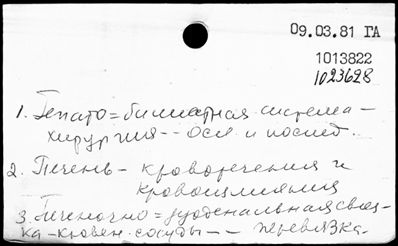 09.03.81 ГА
1013822
1023628
1. Гепато=билиарная система -
хирургия -- осл. и послед.
2. Печень - кровотечения и
кровоизлияния
3. Печеночно=дуоденальная связ-
ка - кровен. сосуды -- перевязка.